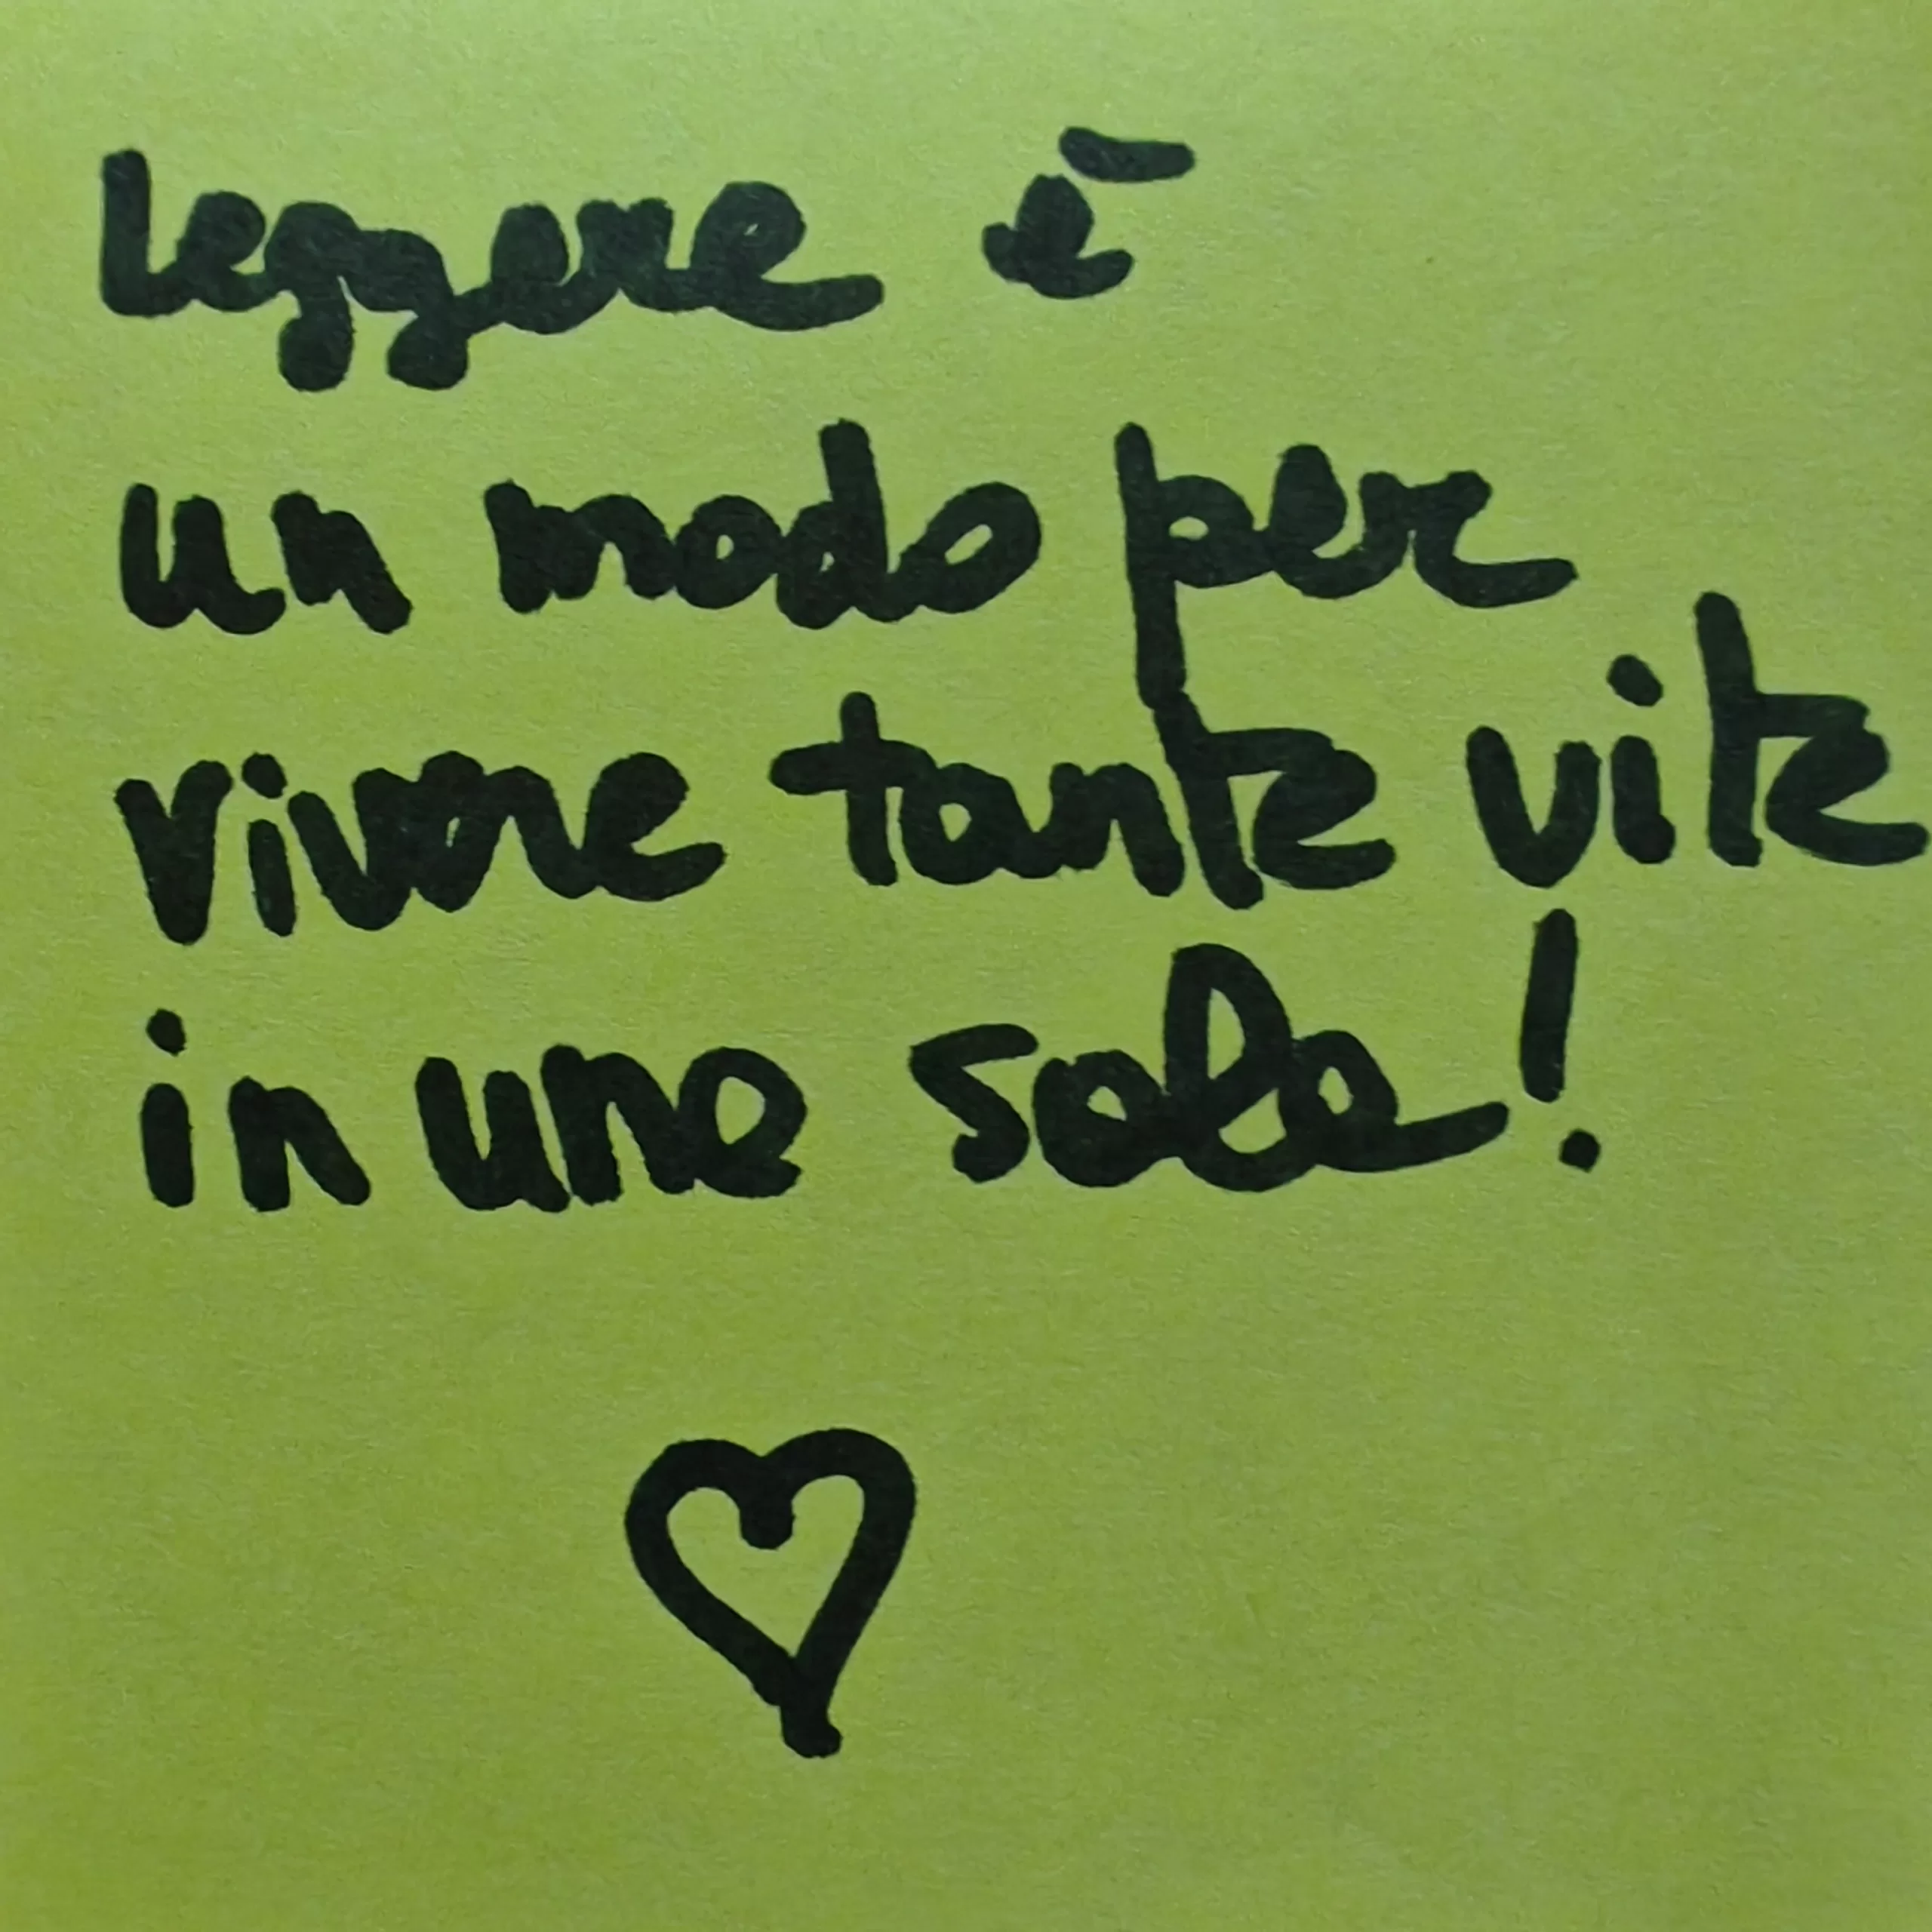 leggere è
un modo per
vivere tante vite
in una sola!